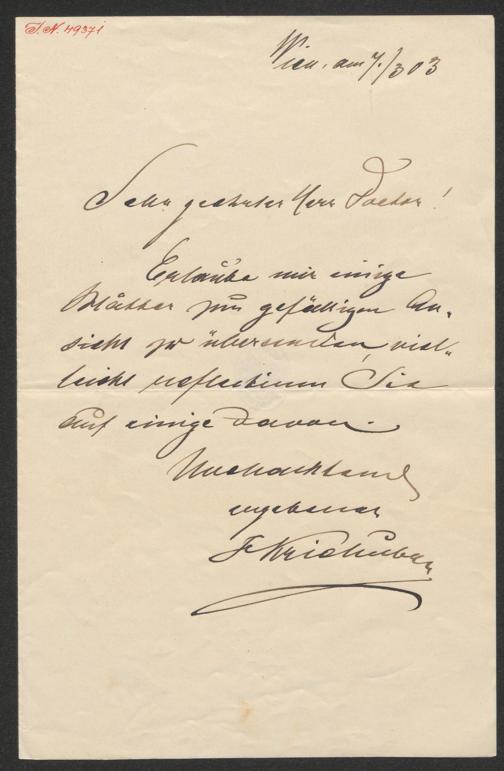 J. N. 49371
Wien, am 7./3 03
Sehr geehrter Herr Doctor!
Erlaube mir einige
Blätter zur gefälligen An-
sicht zu übersenden, viel-
leicht reflectieren Sie
auf einige davon.
Hochachtend
ergebener
Kriehuber